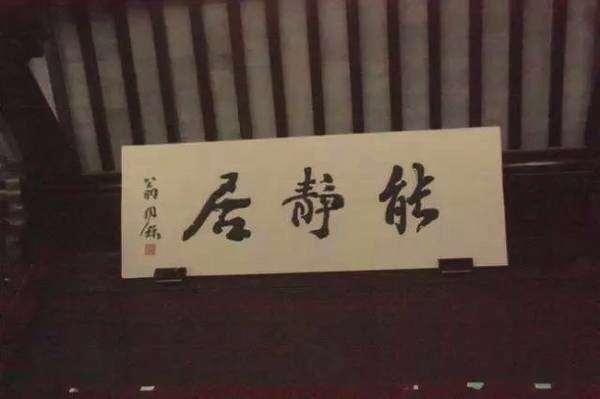 能静居
翁同龢